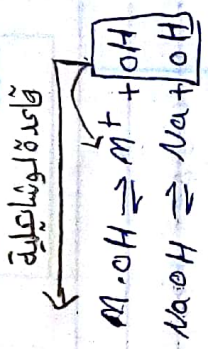 قاعدة لوشاتلية
M.OH ⇌ M+ + OH
NaOH ⇌ Na + OH